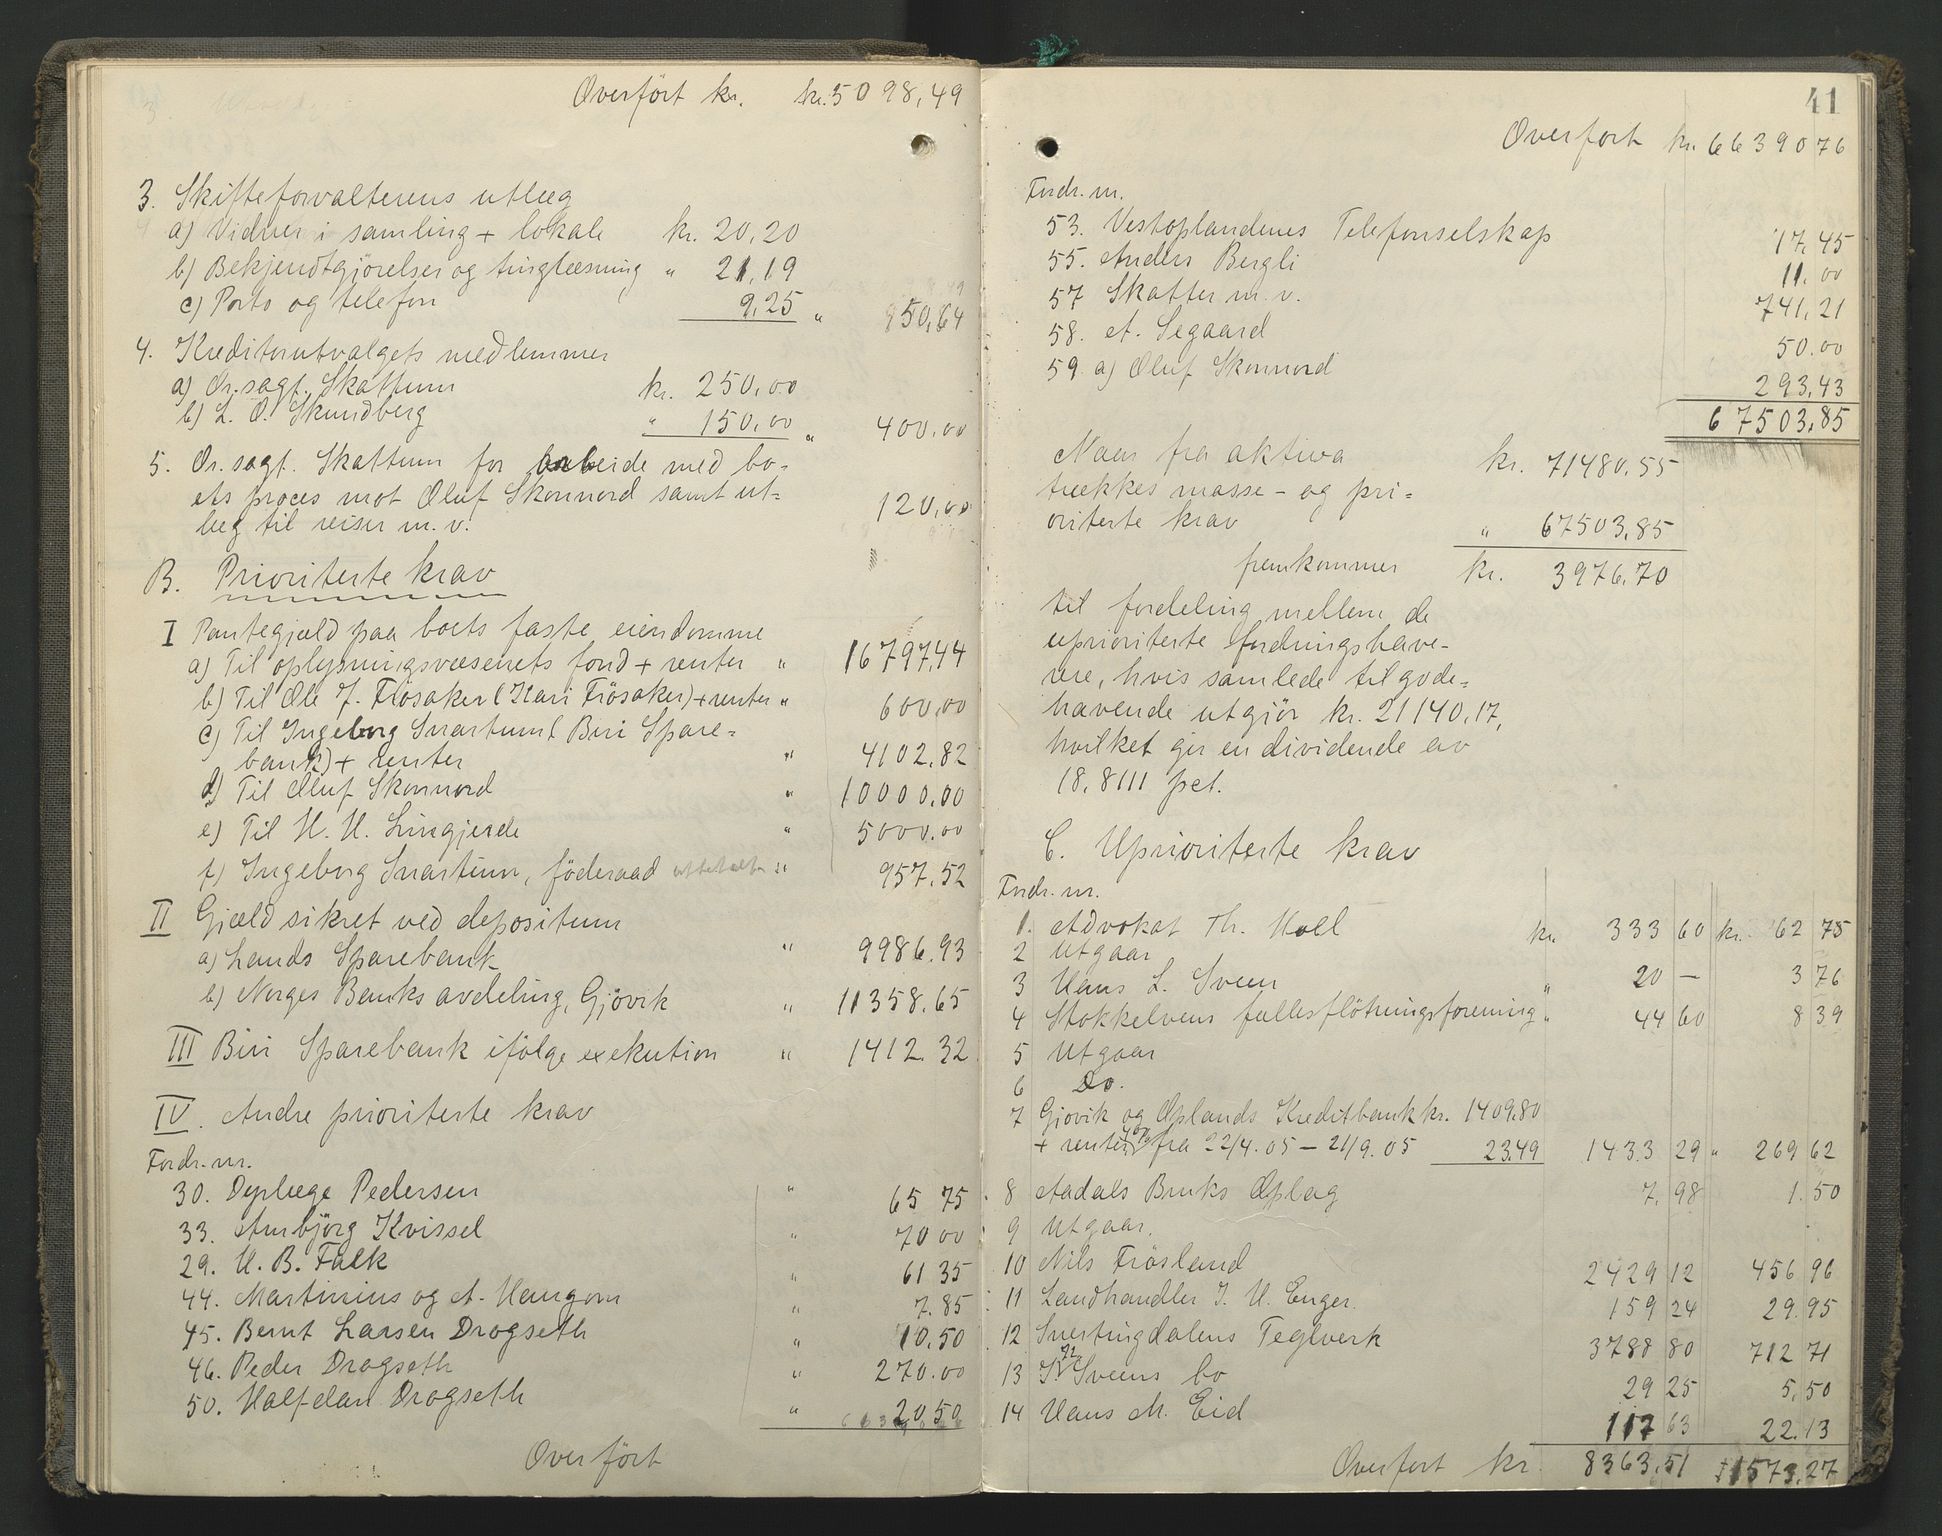 Overført kr. kr. 5098,49
3. Skifteforvalterens utlæg
a) Vidner i samling + lokale kr. 20,20
b) Bekjendtgjörelser og tinglæsning " 21,19
c) Porto og telefon 9,25 " 50,64
4. Kreditorutvalgets medlemmer
a) Or.sagf. Skattum kr. 250,00
b) L. O. Skundberg " 150,00 " 400,00
5. Or.sagf. Skattum for arbeide med bo=
ets proces mot Oluf Skonnord samt ut=
læg til reiser m.v. 120,00
B. Prioriterte krav
I Pantegjæld paa boets faste eiendomme
a) Til oplysningsvæsenets fond + renter " 16797,44
b) Til Ole J. Frösaker (Kari Frösaker) + renter " 600,00
c) Til Ingeborg Snartum (Biri Spare=
bank) + renter " 4102,82
d) Til Oluf Skonnord " 10000,00
e) Til H. H. Lingjerde " 5000,00
f) Ingeborg Snartum, föderaad " 957,52
II Gjæld sikret ved depositum
a) Lands Sparebank " 9986,93
b) Norges Banks avdeling, Gjövik " 11358,65
III Biri Sparebank ifölge exekution " 1412,32
IV. Andre prioriterte krav
Fordr. nr.
30. Dyrlæge Pedersen " 65 75
33. Anbjörg Kvissel " 70 00
29. H. B. Falk " 61 35
44. Martinius og A. Haugom " 7.85
45. Bernt Larsen Drogseth " 10,50
46. Peder Drogseth " 270.00
50. Halfdan Drogseth " 20,50
Overført
41
Overført kr. 66390 76
Fordr. nr.
53. Vestoplandenes Telefonselskap 17,45
55. Anders Bergli 11.00
57 Skatter m.v. 741,21
58. A. Segaard 50.00
59. a) Oluf Skonnord 293,43
67503,85
Naar fra aktiva kr. 71480,55
trækkes masse- og pri=
oriterte krav " 67503,85
fremkommer kr. 3976,70
til fordeling mellem de
uprioriterte fordringshave-
re, hvis samlede tilgode=
havende utgjör kr. 21140,17,
hvilket gir en dividende av
18,8111 pct.
C. Uprioriterte krav
Fordr. nr.
1. Advokat Th. Holl kr. 333 60 kr. 62 75
2 Utgaar
3 Hans L. Sveen " 20 — 3 76
4 Stokkelvens fællesflötningsforening " 44 60 8 39
5 Utgaar
6 Do.
7 Gjövik og Oplands Kreditbank kr. 1409,80
+ renter 4% fra 22/4.05 — 21/9.05 23,49 1433 29 " 269 62
8 Aadals Bruks Oplag 7. 98 1. 50
9 Utgaar.
10 Nils Frösland 2429 12 456 96
11 Landhandler J. H. Enger. 159 24 29.95
12 Snertingdalens Teglverk 3788 80 712 71
13 Sveens bo 29 25 5,50
14 Hans M. Eid 117 63 22.13
Overført kr. 8363,51 1573,27